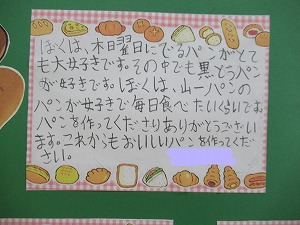 ぼくは、木曜日にでるパンがとて
も大好きです。その中でも黒とうパン
が好きです。ぼくは、山一パンの
パンが大好きで毎日食べたいくらいです。
パンを作ってくださりありがとうござい
ます。これからもおいしいパンを作ってくだ
さい。